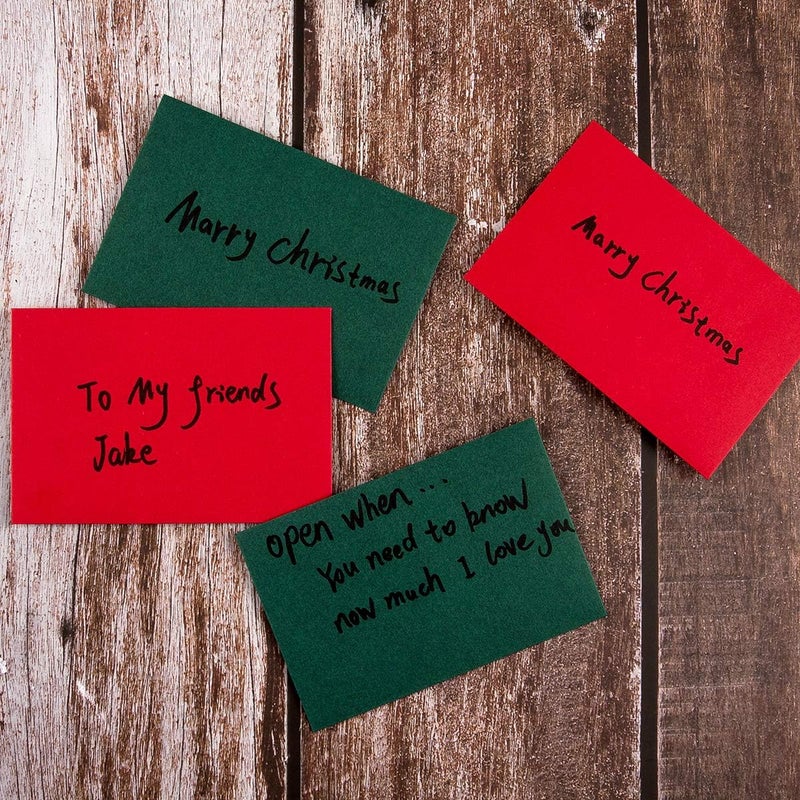 Marry Christmas
Marry Christmas
To My friends
Jake
open when...
You need to know
now much I love you